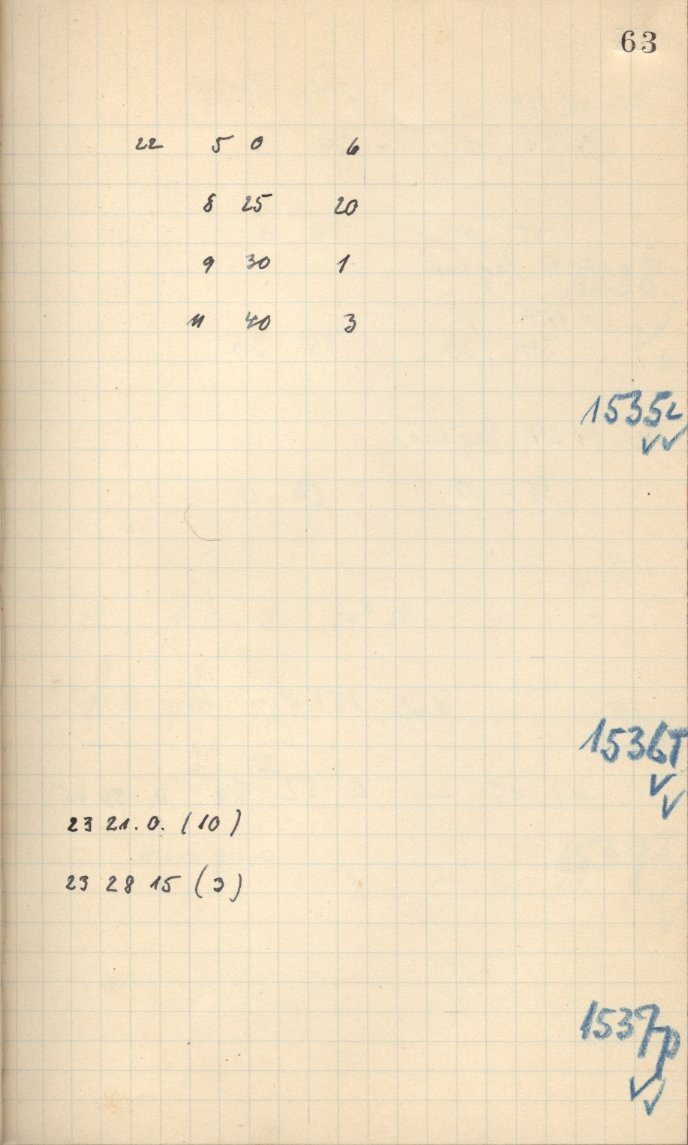 63
22 5 0 6
8 25 20
9 30 1
11 40 3
1535L
1536T
23 21. 0. (10)
23 28 15 (3)
1537p